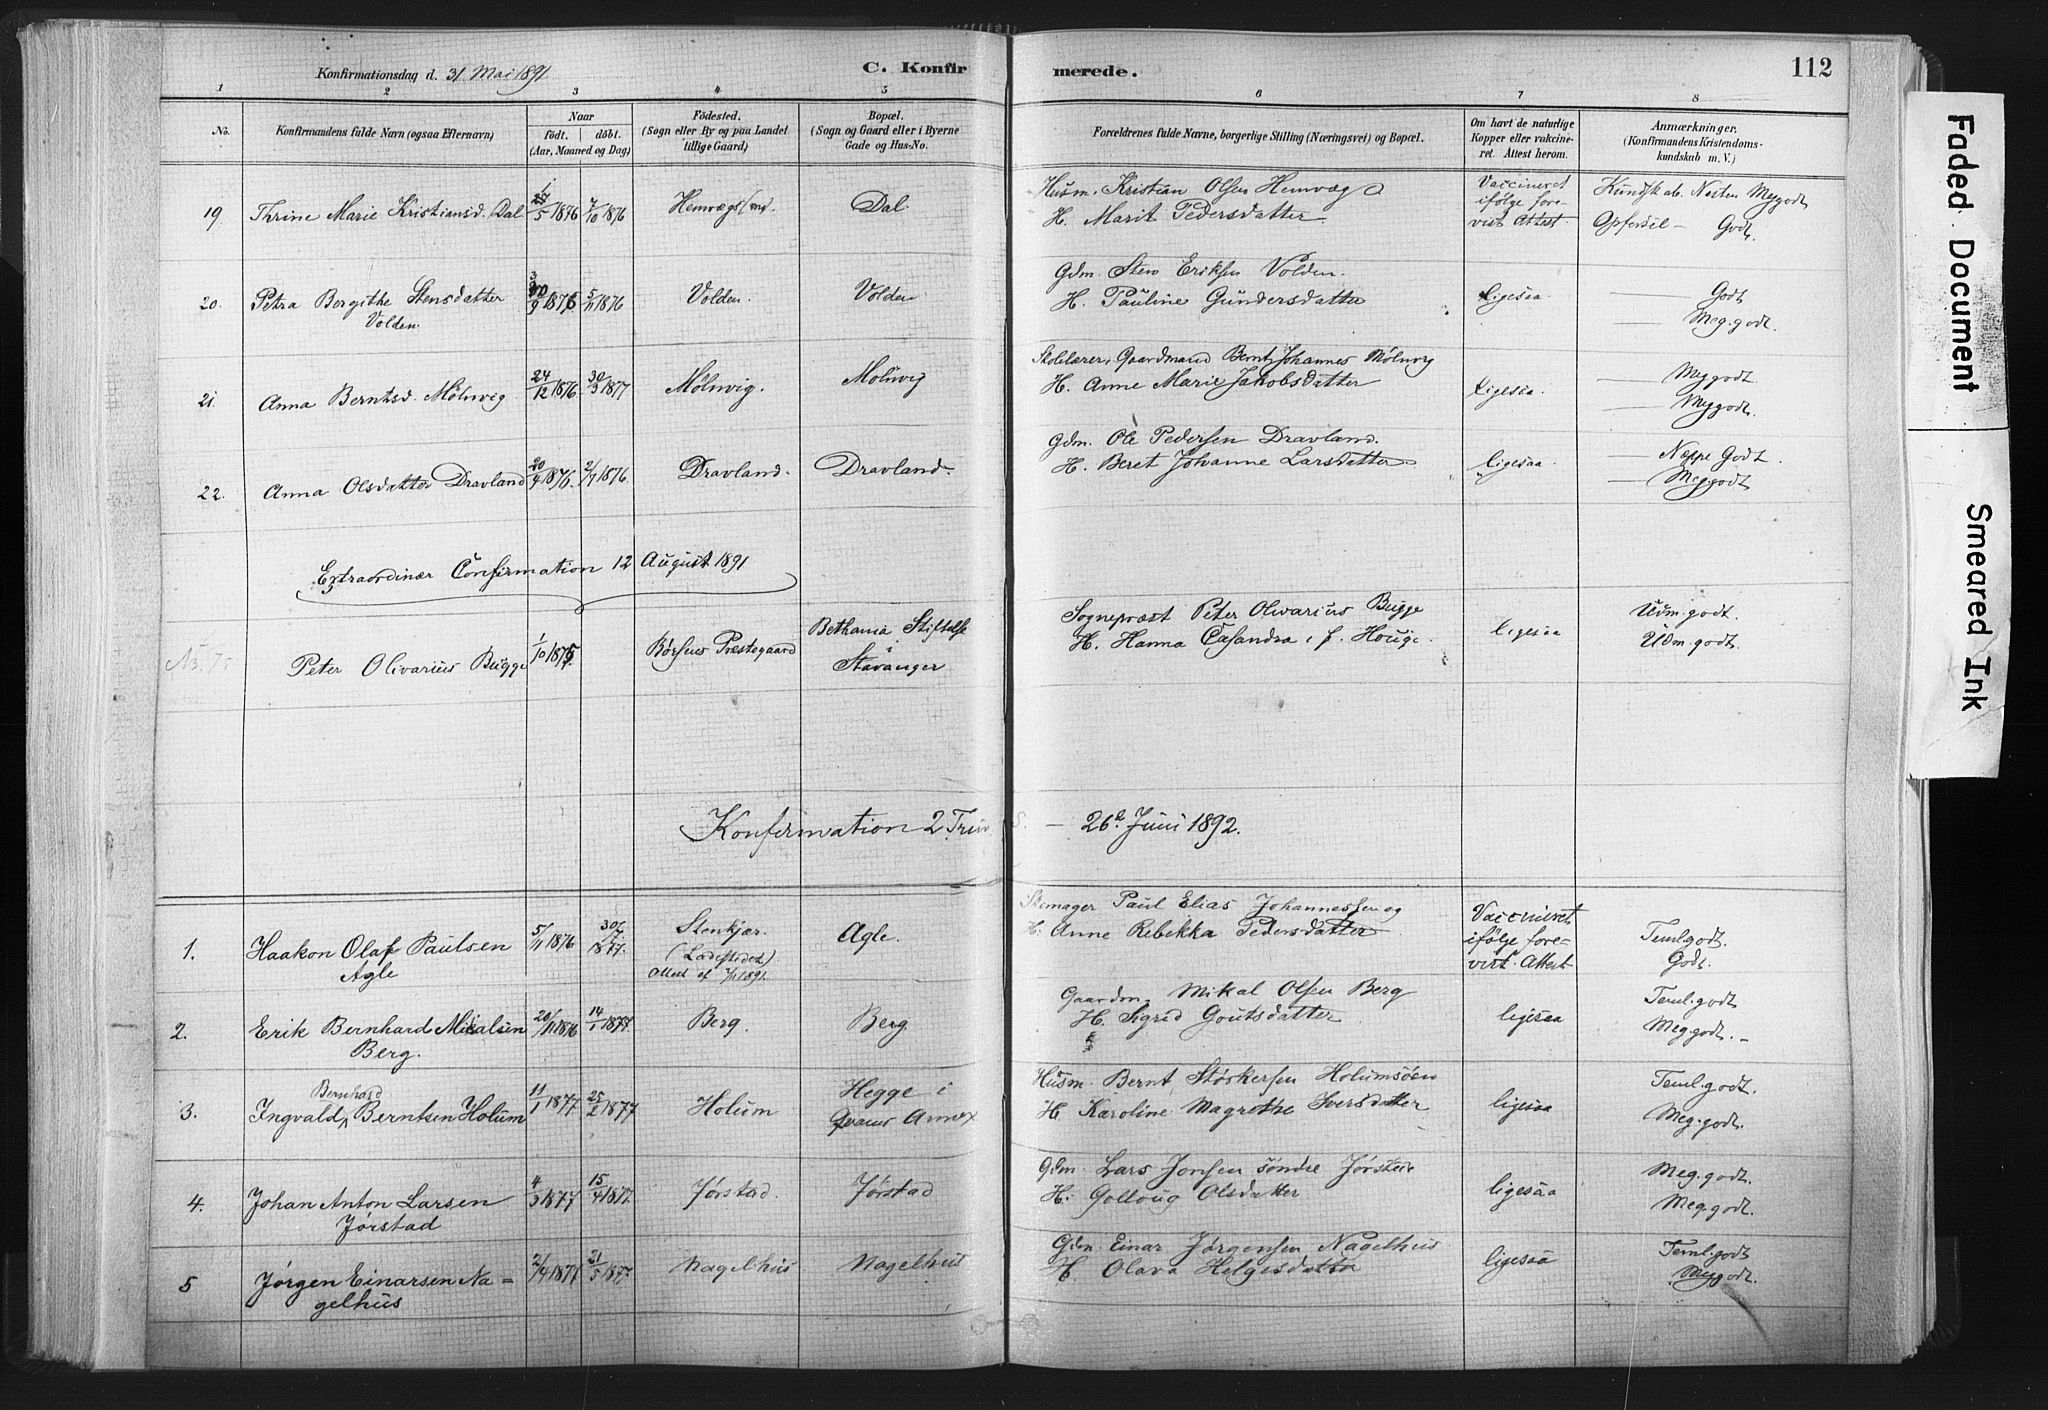 Konfirmationsdag d. 31 Mai 1891 C. Konfirmerede. 112
1 2 3 4 5 6 7 8
No.
Konfirmandens fulde Navn (ogsaa Efternavn)
Naar
født. døbt.
(Aar, Maaned og Dag)
Fødested.
(Sogn eller By og paa Landet
tillige Gaard)
Bopæl.
(Sogn og Gaard eller i Byerne
Gade og Hus-No.
Forældrenes fulde Navne, borgerlige Stilling (Næringsvei) og Bopæl.
Om havt de naturlige
Kopper eller vakcine-
ret. Attest herom.
Anmærkninger.
(Konfirmandens Kristendoms-
kundskab m. V.)
19. Thrine Marie Kristiansd. Dal 5/1876 7/10 1876 Dal.
Husm. Kristian Olsen Hemvæg
H. Marit Pedersdatter
Vaccineret
ifølge fore-
vist Attest
Kundskab. Nesten Meg godt
Opførsel — Godt.
20. Petra Bergithe Stensdatter
Volden. 9 1876 5/11 1876 Volden. Volden
Gdm. Sten Eriksen Volden.
H. Pauline Gundersdatter
Ligesaa.
— Godt
— Meg. godt.
21. Anna Berntsd. Mølnvig 24/12 1876 30/3 1877 Mølnvig. Molnvig
Skolelærer, Gaardmand Bernt Johannes Mølnvig
H. Anne Marie Jakobsdatter
Ligesaa.
— Meg godt.
— Meg godt.
22. Anna Olsdatter Dravland 20/4 1876. 2/7 1876. Dravland. Dravland.
Gdm. Ole Pedersen Dravland.
H. Beret Johanne Larsdatter
ligesaa.
— Neppe Godt.
— Meg. godt
Extraordinær Confirmation 12 August 1891
Peter Olivarius Bugge 1/10 1875 Børsens Præstegaard
Bethania Stiftelse
i
Stavanger
Sognepræst Peter Olivarius Bugge
H. Hanna Casandra, f. Houge.
ligesaa
Udm. godt.
Udm. godt.
Konfirmation 2. Trin. — 26d Juni 1892.
1. Haakon Olaf Paulsen
Agle 5/11 1876 1877.
Stenkjær.
(Ladestedet)
Attest af 1891.
Agle.
Skomager Paul Elias Johannessen og
H. Anne Rebekka Pedersdatter
Vaccineret
ifølge fore-
vist Attest
Teml. godt.
Godt.
2. Erik Bernhard Mikalsen
Berg. 20/11 1876 14/1 1877. Berg. Berg.
Gaardm. Mikal Olsen Berg
H. Sigrid Goutsdatter
ligesaa
Teml. godt
Meg. godt. —
3. Ingvald Bernhard Berntsen Holum 11/1 1877 25/2 1877 Holum
Hegge i
Qvams Annex
Husm. Bernt Størkersen Holumsøen
H. Karoline Magrethe Iversdatter
ligesaa
Teml. godt.
Meg. godt.
4. Johan Anton Larsen
Jørstad 4/3 1877 15/4 1877. Jørstad. Jørstad
Gdm. Lars Jonsen søndre Jørstad
H: Golloug Olsdatter
ligesaa
Meg. godt.
Meg. godt.
5 Jørgen Einarsen Na=
gelhus 2/4 1877 21/5 1877. Nagelhus Nagelhus
Gdm. Einar Jørgensen Nagelhus
H. Olava Helgesdatter
ligesaa
Teml. godt
Meg godt.
Faded Document
Smeared Ink